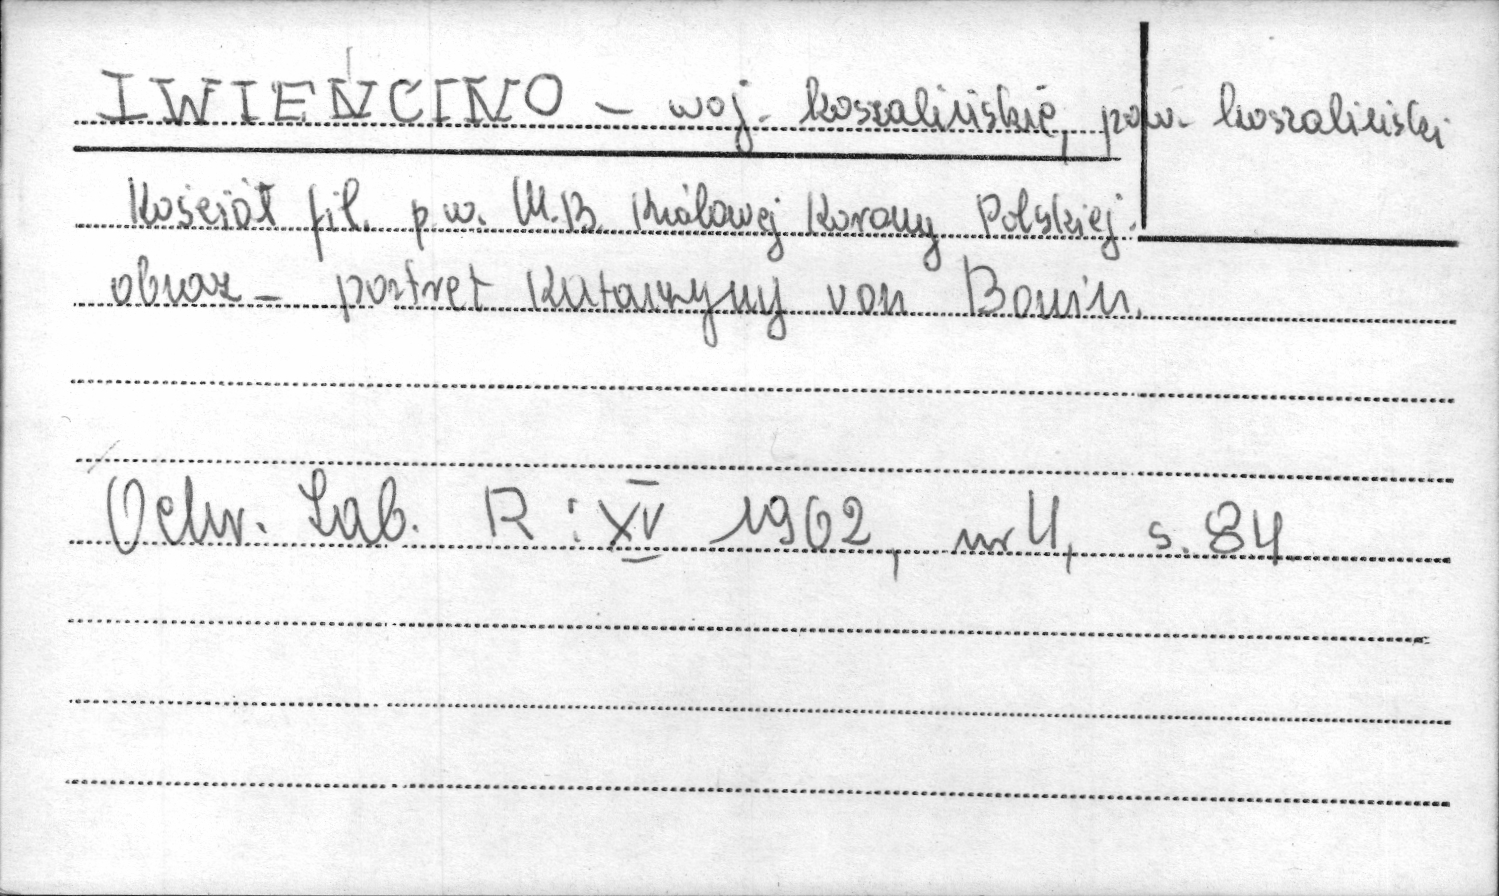 IWIEŃCINO - woj. koszalińskie, pow. koszaliński
Kościół fil. p.w. M.B. Królowej Korony Polskiej.
obraz - portret Katarzyny von Bonin.
Ochr. Zab. R: XV 1962, nr 4, s. 84